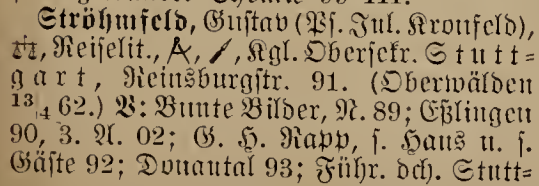 Ströhmfeld, Gustav (Ps. Jul. Kronfeld),
Reiselit., Kgl. Obersekr. Stutt-
gart, Reinsburgstr. 91. (Oberwälden
13/4 62.) V: Bunte Bilder, N. 89; Eßlingen
90, 3. A. 02; G. H. Rapp, s. Haus u. s.
Gäste 92; Donautal 93; Führ. dch. Stutt=